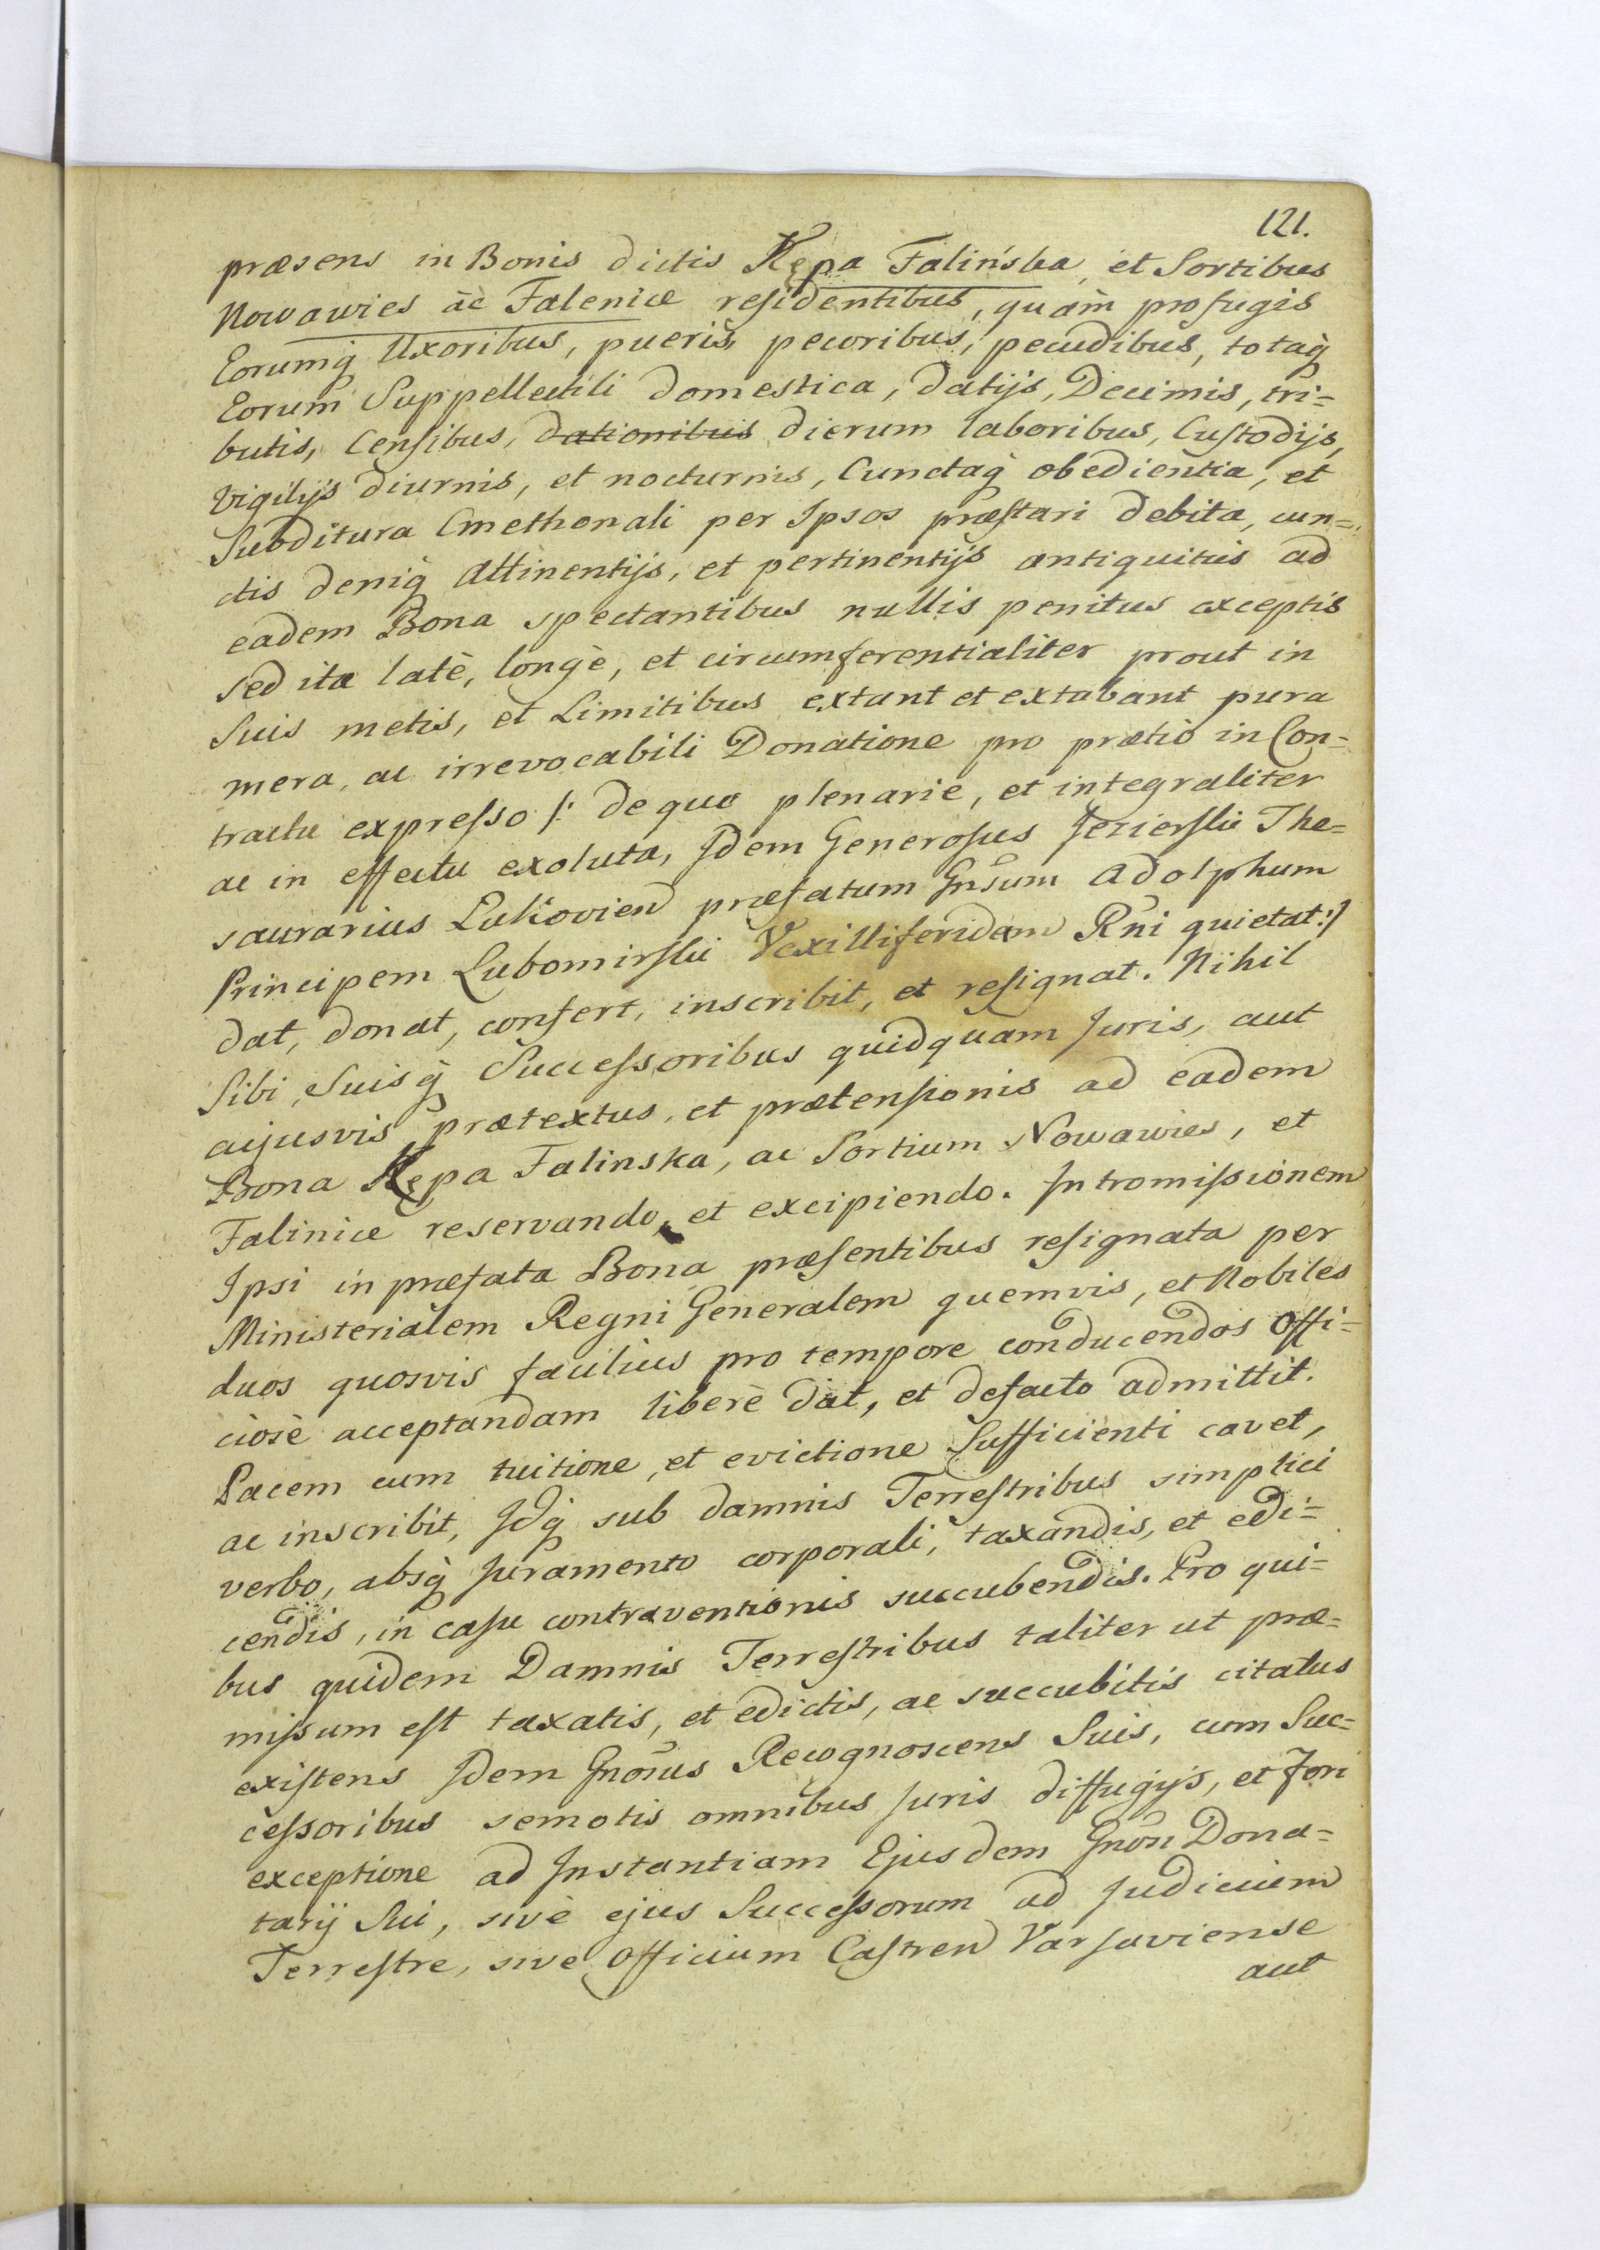 121.
præsens in Bonis dictis Kępa Falińska, et Sortibus
Nowawies ac Falenice residentibus, quàm profugis
Eorumq̀ Uxoribus, pueris, pecoribus, pecudibus, totaq̀
Eorum Suppellectili domestica, datijs, Decimis, tri=
butis, Censibus, dationibus dierum laboribus, Custodijs,
Vigilijs diurnis, et nocturnis, Cunctaq̀ obedientia, et
Subditura Cmethonali per Ipsos præstari debita, cun=
ctis deniq̀ Attinentijs, et pertinentijs antiquitus ad
eadem Bona spectantibus nullis penitus exceptis
sed ita latè, longè, et circumferentialiter prout in
Suis metis, et Limitibus extant et extabant pura
mera, ac irrevocabili Donatione pro prætiò in Con=
tractu expresso /: de quo plenarie, et integraliter
ac in effectu exoluta, Idem Generosus Jezierski The=
saurarius Łukovien præfatum Gn̄sum Adolphum
Principem Lubomirski Vexilliferidam Rn̄i quietat:/
dat, donat, confert, inscribit, et resignat. Nihil
Sibi, Suisq̀ Successoribus quidquam Juris, aut
cujusvis prætextus, et prætensionis ad eadem
Bona Kępa Falinska, ac Sortium Nowawies, et
Falinice reservando, et excipiendo. Intromissionem
Ipsi in præfata Bona præsentibus resignata per
Ministerialem Regni Generalem quemvis, et Nobiles
duos quosvis facilius pro tempore conducendos Offi=
ciosè acceptandam liberè dat, et defacto admittit.
Pacem cum tuitione, et evictione Sufficienti cavet,
ac inscribit, Idq̀ sub damnis Terrestribus simplici
verbo, absq̀ Juramento corporali, taxandis, et edi=
cendis, in casu contraventionis succubendis. Pro qui=
bus quidem Damnis Terrestribus taliter ut præ=
missum est taxatis, et edictis, ac succubitis citatus
existens Idem Gnōsus Recognoscens Suis, cum Suc=
cessoribus semotis omnibus Juris diffugijs, et Fori
exceptione ad Instantiam Ejusdem Gnōsi Dona=
tarij Sui, sivè ejus Successorum ad Judicium
Terrestre, sive Officium Castren Varsaviense
aut